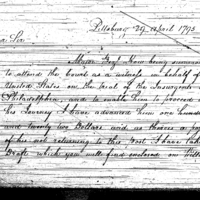 Pittsburg 29 April 1795
Sir
Major Gray having been summoned
to attend the court as a witness in behalf of
United States on the trial of the Insurgents
Philadelphia, and to enable him to proceed
his Journey I have advanced him one hundred
and twenty two Dollars and as there is a
of his not returning to this Post I have taken
Draft which you will find enclosed on